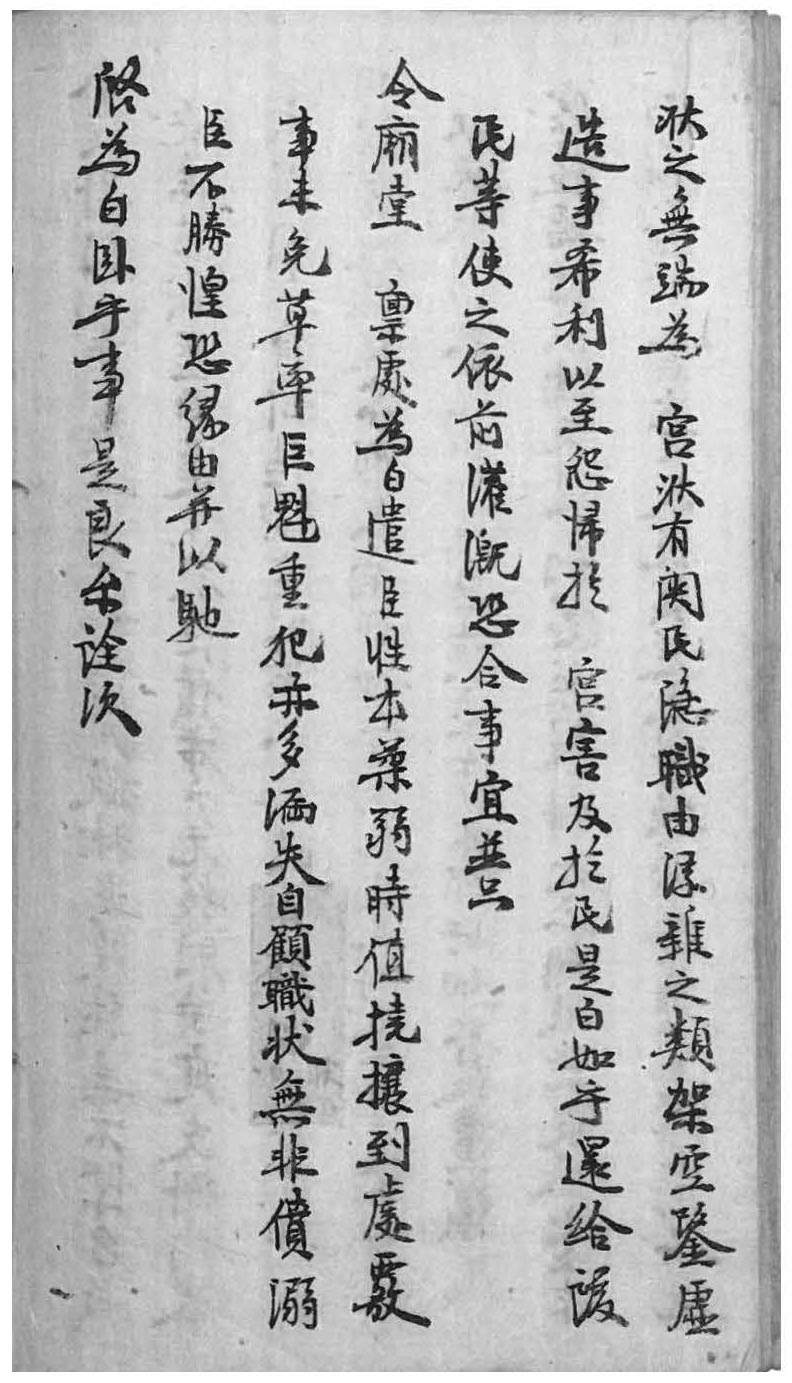 狀之無端爲 宮狀有関民隱職由深雜之類架空鑿虛
造事希利以至怨歸於 宮害及於民是白如乎還給該
民等使之依前灌漑恐合事宜並只
令廟堂 稟處爲白遣臣性本柔弱時值撓攘到處覈
事未免草率巨魁重犯亦多漏失自顧職狀無非僨溺
臣不勝惶恐緣由并以馳
啓爲白臥乎事是良厼詮次